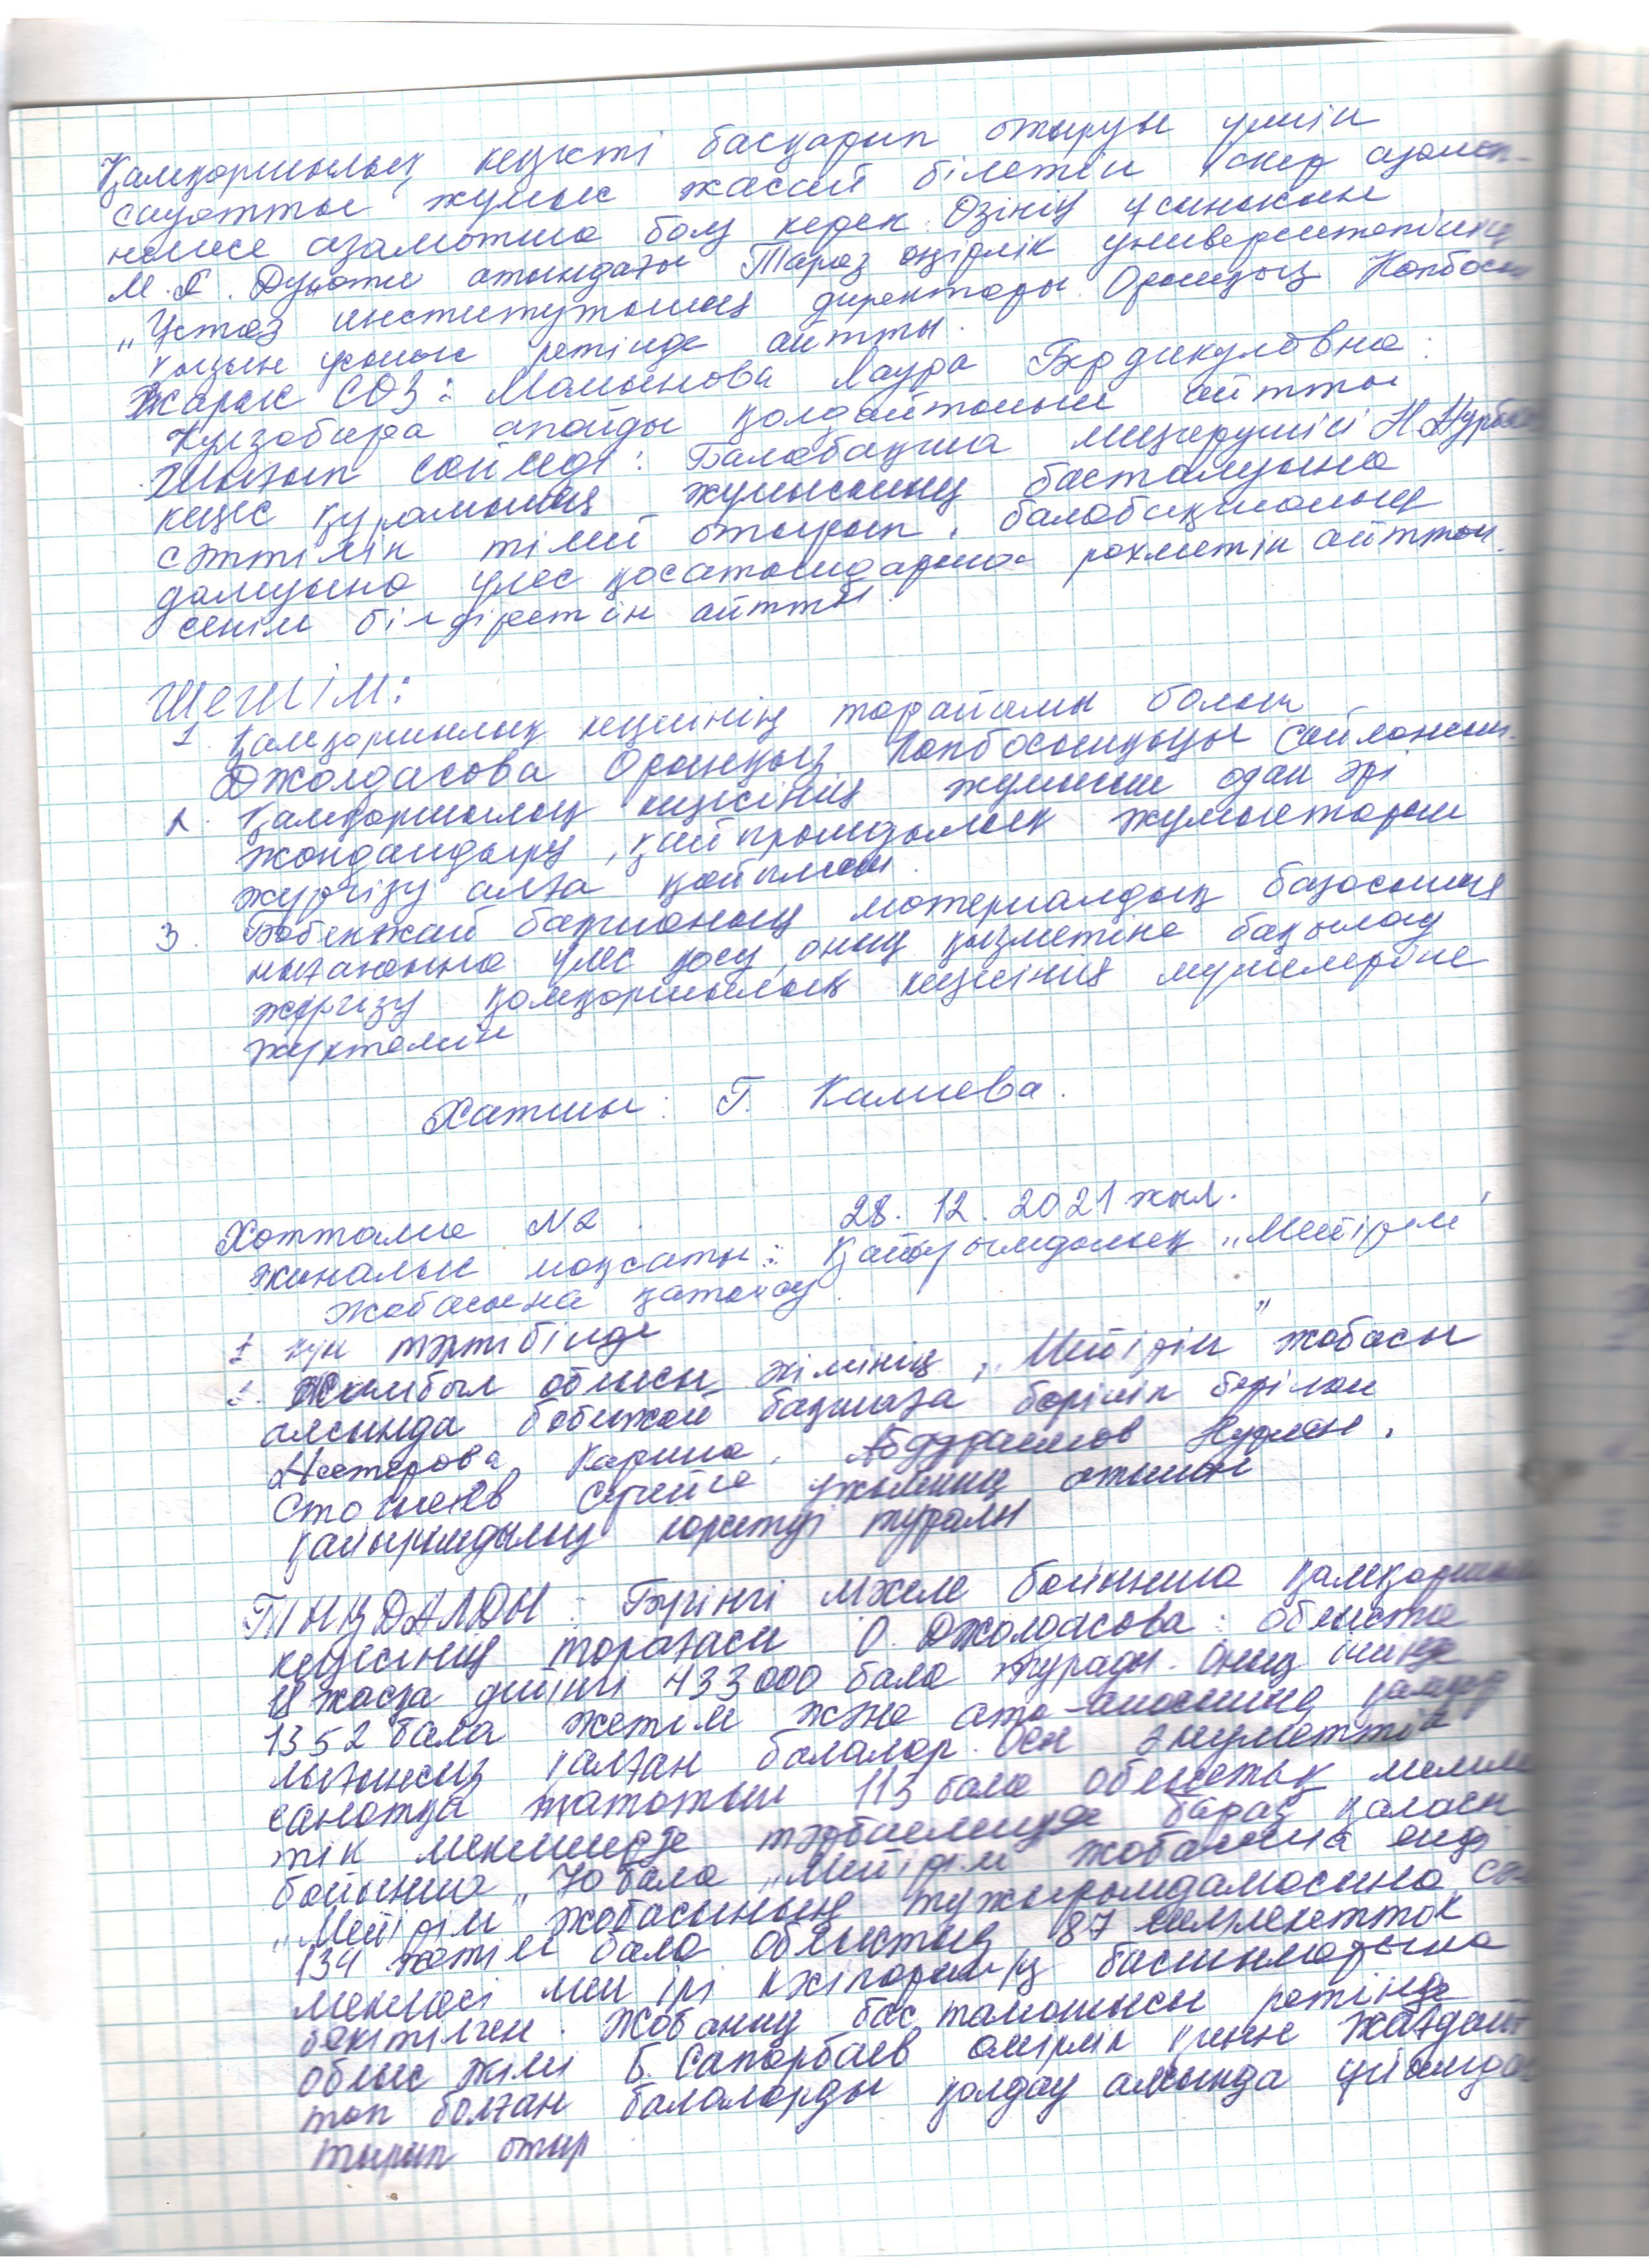 Қамқоршылық кеңесті басқарып отыруы үшін
сауатты жұмыс жасай білетін іскер
немесе азаматша болу керек. Өзінің ұсынысын
М.Х. Дулати атындағы Тараз өңірлік университетінің
"Ұстаз институтының директоры Оранқыз
ұсыныс ретінде айтты.
Жарыс СӨЗ: Мамынова Лаура Бердикуловна:
Кулзабира апайды қолдайтынын айтты
Шығып сөйледі: Балабақша меңгерушісі Н.
кеңес құрамының жұмысының бастамуына
сәттілік тілей отырып, балабақшаның
дамуына үлес қосатындарына рахметін айтты.
сенім білдіретін айтты.
ШЕШІМ:
1. Қамқоршылық кеңесінің төрайымы болып
Джолдасова Оранқыз Копбосынқызы сайлансын.
2. Қамқоршылық кеңесінің жұмысын одан әрі
жандандыру, қайырымдылық жұмыстарын
жүргізу алға қойылсын.
3. Бөбекжай бақшаның материалдық базасының
нығаюына үлес қосу, оның қызметіне бақылау
жүргізу қамқоршылық кеңесінің мүшелеріне
жүктелсін
Хатшы: Г. Калиева.
Хаттама №2 28.12.2021 жыл.
Жиналыс мақсаты: Қайырымдылық "Мейірім"
жобасына қатысу.
1 күн тәртібінде
1. Жамбыл облысы әкімінің "Мейірім" жобасы
аясында бөбекжай бақшаға бөрініп берілген
Нестерова Карина, Абдураимов Нурлан,
Сергейге ұжымның атынан
қайырымдылық көрсетуі туралы
ТЫҢДАЛДЫ: Бүгінгі мәселе бойынша
кеңесінің төрағасы О. Джолдасова: облыста
18 жасқа дейінгі 433000 бала тұрады. Оның ішінде
1352 бала жетім және ата-анасының
лығынсыз қалған балалар. Осы әлеуметтік
санатқа жататын 113 бала облыстық
тік мекемеде тәрбиеленуде. Тараз қаласы
бойынша 70 бала "Мейірім" жобасына енді
"Мейірім" жобасының тұжырымдамасына
134 жетім бала облыстың 87 мемлекеттік
мекемесі мен ірі кәсіпорынның басшыларына
бекітілген. Жобаның бастамашысы ретінде
облыс әкімі Б. Сапарбаев өмірлік қиын
тап болған балаларды қолдау аясында
тырып отыр